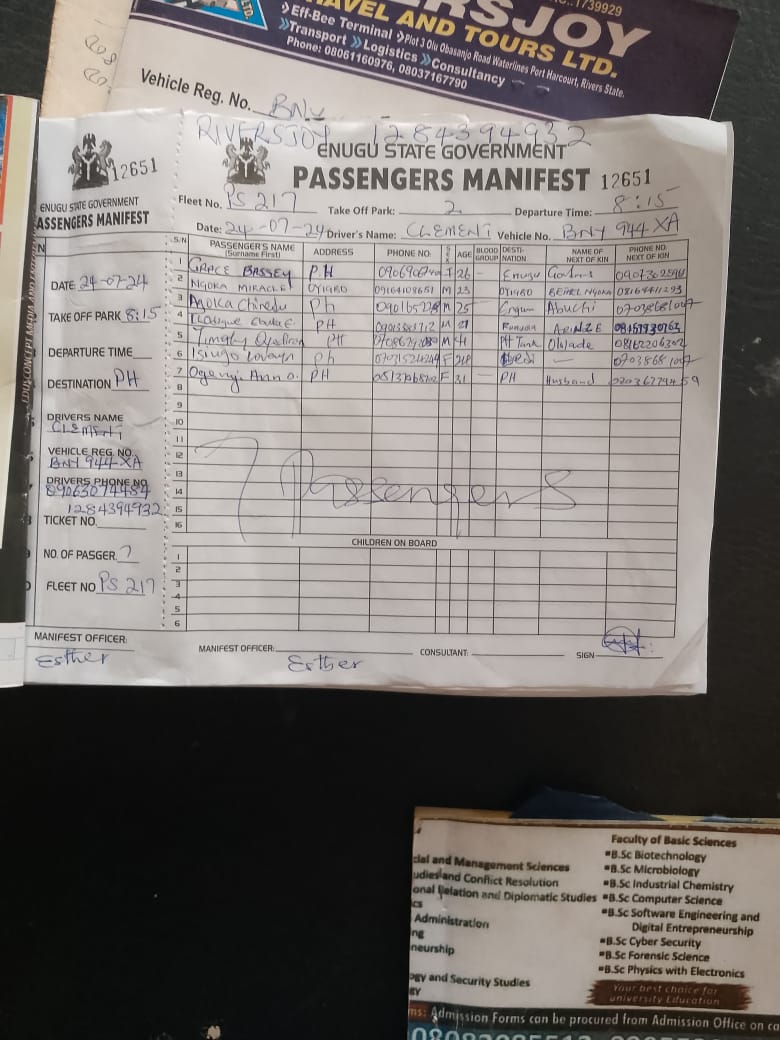 1739929
LTD.
RSJOY
AVEL AND TOURS LTD.
Eff-Bee Terminal Plot 3 Olu Obasanjo Road Waterlines Port Harcourt, Rivers State.
Transport Logistics Consultancy
Phone: 08061160976, 08037167790
Vehicle Reg. No. BNY
RIVERSJOY 1284394932
12651
ENUGU STATE GOVERNMENT
ASSENGERS MANIFEST
DATE 24-07-24
TAKE OFF PARK 8:15
DEPARTURE TIME
DESTINATION PH
DRIVERS NAME
CLEMENT
VEHICLE REG. NO.
BNY 944 XA
DRIVERS PHONE NO.
09063074484
1284394932
TICKET NO.
NO. OF PASGER. 7
FLEET NO PS 217
MANIFEST OFFICER:
Esther
ENUGU STATE GOVERNMENT
PASSENGERS MANIFEST 12651
Fleet No. PS 217 Take Off Park: 2 Departure Time: 8:15
Date: 24-07-24 Driver's Name: CLEMENT Vehicle No. BNY 944 XA
S/N PASSENGER'S NAME (Surname First) ADDRESS PHONE NO: SEX AGE BLOOD GROUP DESTI-NATION NAME OF NEXT OF KIN PHONE NO: NEXT OF KIN
1 GRACE BASSEY P.H F 26 - Enugu
2 NGOKA MIRACLE OYIGBO 09164108651 M 23 OYIGBO NGOKA
3 Chinedu Ph M 25 Abuchi
4 PH M ARINZE
5 Timothy PH M 41
6 Ph F -
7 Ann O. PH F 31 - PH Husband
8
9
10
11
12
13
14
15
16
7 Passengers
CHILDREN ON BOARD
1
2
3
4
5
6
MANIFEST OFFICER: Esther CONSULTANT: SIGN
cial and Management Sciences
udies and Conflict Resolution
onal Relation and Diplomatic Studies
cs
Administration
ng
neurship
ogy and Security Studies
gy
Faculty of Basic Sciences
B.Sc Biotechnology
B.Sc Microbiology
B.Sc Industrial Chemistry
B.Sc Computer Science
B.Sc Software Engineering and
Digital Entrepreneurship
B.Sc Cyber Security
B.Sc Forensic Science
B.Sc Physics with Electronics
Your best choice for
university Education
ms: Admission Forms can be procured from Admission Office on ca